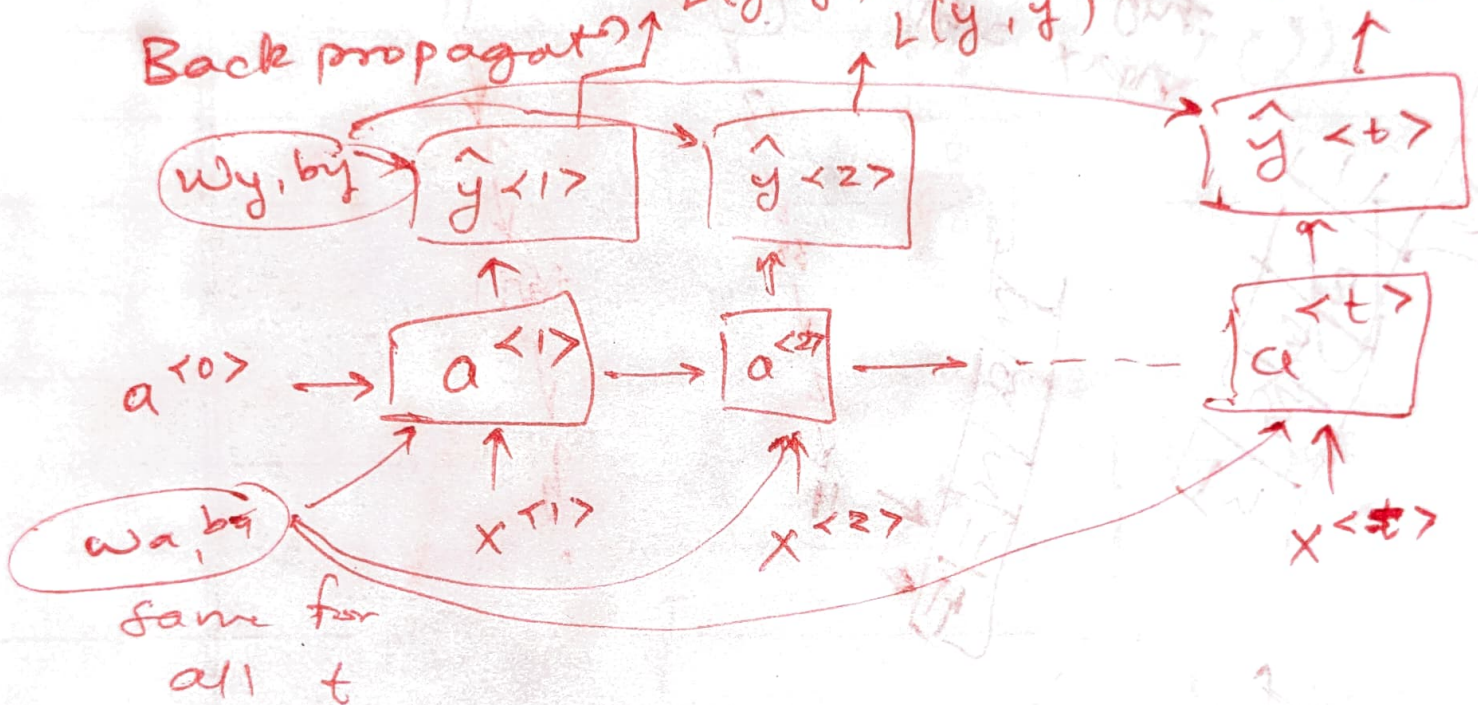 L(y, y)
Back propagatn
wy, by
ŷ<1>
ŷ<2>
ŷ<t>
a<0>
a<1>
a<2>
a<t>
wa, ba
x<1>
x<2>
x<t>
same for
all t